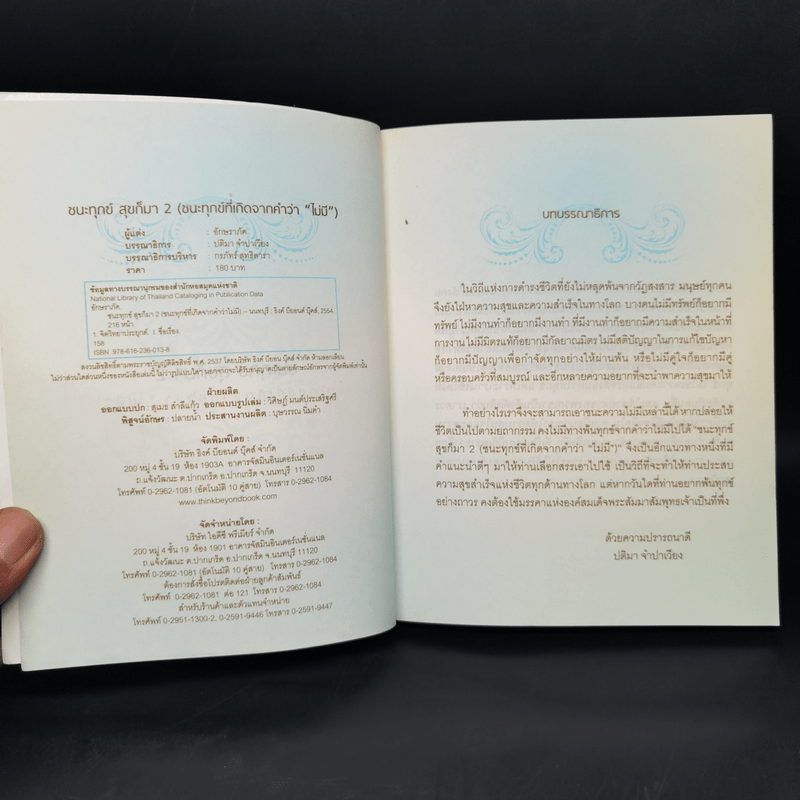 ชนะทุกข์ สุขก็มา 2 (ชนะทุกข์ที่เกิดจากคำว่า "ไม่มี")
ผู้แต่ง : อักษราภัค
บรรณาธิการ : ปติมา จำปาเวียง
บรรณาธิการบริหาร : กรภัทร์ สุทธิดารา
ราคา : 180 บาท
ข้อมูลทางบรรณานุกรมของสำนักหอสมุดแห่งชาติ
National Library of Thailand Cataloging in Publication Data
อักษราภัค.
ชนะทุกข์ สุขก็มา 2 (ชนะทุกข์ที่เกิดจากคำว่าไม่มี) -- นนทบุรี : ธิงค์ บียอนด์ บุ๊คส์, 2554.
216 หน้า.
1. จิตวิทยาประยุกต์. I. ชื่อเรื่อง.
158
ISBN 978-616-236-013-8
สงวนลิขสิทธิ์ตามพระราชบัญญัติลิขสิทธิ์ พ.ศ. 2537 โดยบริษัท ธิงค์ บียอนด์ บุ๊คส์ จำกัด ห้ามลอกเลียน
ไม่ว่าส่วนใดส่วนหนึ่งของหนังสือเล่มนี้ ไม่ว่ารูปแบบใดๆ นอกจากจะได้รับอนุญาตเป็นลายลักษณ์อักษรจากผู้จัดพิมพ์เท่านั้น
ฝ่ายผลิต
ออกแบบปก : สุเมธ ลำลีแก้ว ออกแบบรูปเล่ม : วิศิษฎ์ มนต์ประเสริฐศรี
พิสูจน์อักษร : ปลายน้ำ ประสานงานผลิต : บุษวรรณ นิมคำ
จัดพิมพ์โดย :
บริษัท ธิงค์ บียอนด์ บุ๊คส์ จำกัด
200 หมู่ 4 ชั้น 19 ห้อง 1903A อาคารจัสมินอินเตอร์เนชั่นแนล
ถ.แจ้งวัฒนะ ต.ปากเกร็ด อ.ปากเกร็ด จ.นนทบุรี 11120
โทรศัพท์ 0-2962-1081 (อัตโนมัติ 10 คู่สาย) โทรสาร 0-2962-1084
www.thinkbeyondbook.com
จัดจำหน่ายโดย :
บริษัท ไอดีซี พรีเมียร์ จำกัด
200 หมู่ 4 ชั้น 19 ห้อง 1901 อาคารจัสมินอินเตอร์เนชั่นแนล
ถ.แจ้งวัฒนะ ต.ปากเกร็ด อ.ปากเกร็ด จ.นนทบุรี 11120
โทรศัพท์ 0-2962-1081 (อัตโนมัติ 10 คู่สาย) โทรสาร 0-2962-1084
ต้องการสั่งซื้อโปรดติดต่อฝ่ายลูกค้าสัมพันธ์
โทรศัพท์ 0-2962-1081 ต่อ 121 โทรสาร 0-2962-1084
สำหรับร้านค้าและตัวแทนจำหน่าย
โทรศัพท์ 0-2951-1300-2, 0-2591-9446 โทรสาร 0-2591-9447
บทบรรณาธิการ
ในวิถีแห่งการดำรงชีวิตที่ยังไม่หลุดพ้นจากวัฏสงสาร มนุษย์ทุกคน
จึงยังใฝ่หาความสุขและความสำเร็จในทางโลก บางคนไม่มีทรัพย์ก็อยากมี
ทรัพย์ ไม่มีงานทำก็อยากมีงานทำ ที่มีงานทำก็อยากมีความสำเร็จในหน้าที่
การงาน ไม่มีมิตรแท้ก็อยากมีกัลยาณมิตร ไม่มีสติปัญญาในการแก้ไขปัญหา
ก็อยากมีปัญญาเพื่อกำจัดทุกอย่างให้ผ่านพ้น หรือไม่มีคู่ใจก็อยากมีคู่
หรือครอบครัวที่สมบูรณ์ และอีกหลายความอยากที่จะนำพาความสุขมาให้
ทำอย่างไรเราจึงจะสามารถเอาชนะความไม่มีเหล่านี้ได้ หากปล่อยให้
ชีวิตเป็นไปตามยถากรรม คงไม่มีทางพ้นทุกข์จากคำว่าไม่มีไปได้ "ชนะทุกข์
สุขก็มา 2 (ชนะทุกข์ที่เกิดจากคำว่า "ไม่มี")" จึงเป็นอีกแนวทางหนึ่งที่มี
คำแนะนำดีๆ มาให้ท่านเลือกสรรเอาไปใช้ เป็นวิถีที่จะทำให้ท่านประสบ
ความสุขสำเร็จแห่งชีวิตทุกด้านทางโลก แต่หากวันใดที่ท่านอยากพ้นทุกข์
อย่างถาวร คงต้องใช้มรรคาแห่งองค์สมเด็จพระสัมมาสัมพุทธเจ้าเป็นที่พึ่ง
ด้วยความปรารถนาดี
ปติมา จำปาเวียง